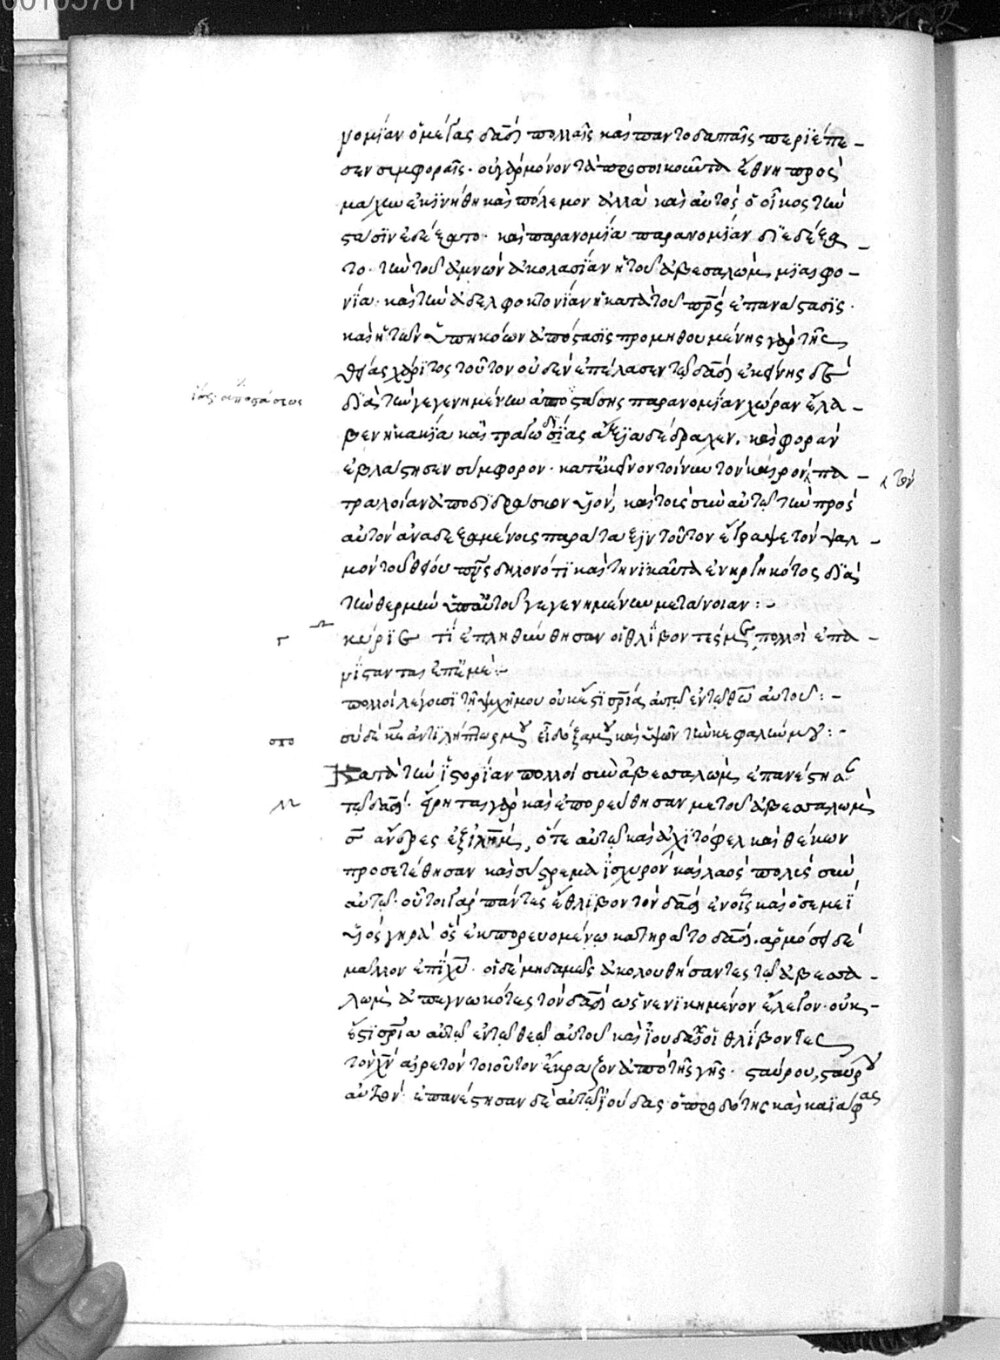 00105761
νομίαν ὁ μέγας δα̅δ πολλαῖς καὶ παντοδαπαῖς περιέπε-
σεν συμφοραῖς· οὐ γὰρ μόνον τὰ προσοικοῦντα ἔθνη πρὸς
μάχην ἐκινήθη καὶ πόλεμον ἀλλὰ καὶ αὐτὸς ὁ οἶκος τὴν
στάσιν ἐδέξατο· καὶ παρανομία παρανομίαν διεδέξα-
το· τὴν τοῦ ἀμνὼν ἀκολασίαν ἡ τοῦ ἀβεσαλὼμ μιαιφο-
νία· καὶ τὴν ἀδελφοκτονίαν ἡ κατὰ τοῦ πρ̅ς ἐπανάστασις·
καὶ ἡ τῶν ὑπηκόων ἀπόστασις προμηθουμένης γὰρ τῆς
θείας χάριτος τούτων οὐδὲν ἐπέλασεν τῷ δα̅δ ἐκείνης δὲ
διὰ τὴν γεγενημένην ἀποστάσης παρανομίαν χώραν ἔλα-
βεν ἡ κακία καὶ τραγῳδίας ἄξια δέδρακεν. καὶ φορὰν
ἐβλάστησεν συμφορῶν· κατ' ἐκεῖνον τοίνυν τὸν καιρὸν πα-
τῶν
τραλοίαν ἀποδιδράσκων υἱὸν, καὶ τοῖς σὺν αὐτῷ τὴν πρὸς
αὐτὸν ἀναδεξαμένοις παράταξιν τοῦτον ἔγραψε τὸν ψαλ-
μὸν τοῦ θείου πν̅ς δηλονότι καὶ τηνικαῦτα ἐνηργηκότος διὰ
τὴν θερμὴν ὑπ' αὐτοῦ γεγενημένην μετάνοιαν:-
κύριε τί ἐπληθύνθησαν οἱ θλίβοντές με, πολλοὶ ἐπα-
νίστανται ἐπ' ἐμέ:-
πολλοὶ λέγουσι τῇ ψυχῇ μου οὐκ ἔστι σρ̅ία αὐτῷ ἐν τῷ θῶ αὐτοῦ:-
σὺ δὲ κ̅ε ἀντιλήπτωρ μου εἶ δόξα μου καὶ ὑψῶν τὴν κεφαλήν μου:-
κατὰ τὴν ἱστορίαν πολλοὶ σὺν ἀβεσσαλὼμ ἐπανέστησαν
τῷ δα̅δ· εἴρηται γὰρ καὶ ἐπορεύθησαν μετὰ τοῦ ἀβεσσαλὼμ
σ̅ ἄνδρες ἐξ ἰλ̅ημ, ὅτε αὐτῷ καὶ ἀχιτόφελ καὶ θεκων
προσετέθησαν καὶ σύστρεμμα ἰσχυρὸν καὶ λαὸς πολὺς σὺν
αὐτῷ· οὗτοι γὰρ πάντες ἔθλιβον τὸν δα̅δ ἐν οἷς καὶ ὁ σεμεῒ
υἱὸς γηρὰ ὃς ἐκπορευομένῳ κατηρᾶτο δα̅δ· ἁρμόσει δὲ
μᾶλλον ἐπὶ χυ̅· οἱ δὲ μηδαμῶς ἀκολουθήσαντες τῷ ἀβεσσα-
λὼμ ἀπεγνωκότες τὸν δα̅δ ὡς νενικημένον ἔλεγον· οὐκ
ἔστι σρ̅ία αὐτῷ ἐν τῷ θεῷ αὐτοῦ καὶ ἰουδαῖοι θλίβοντες
τὸν χν̅ ἆρε τὸν τοιοῦτον ἔκραζον ἀπὸ τῆς γῆς· σταύρου, σταύρου
αὐτὸν· ἐπανέστησαν δὲ αὐτῷ ἰούδας ὁ προδότης καὶ καϊάφας